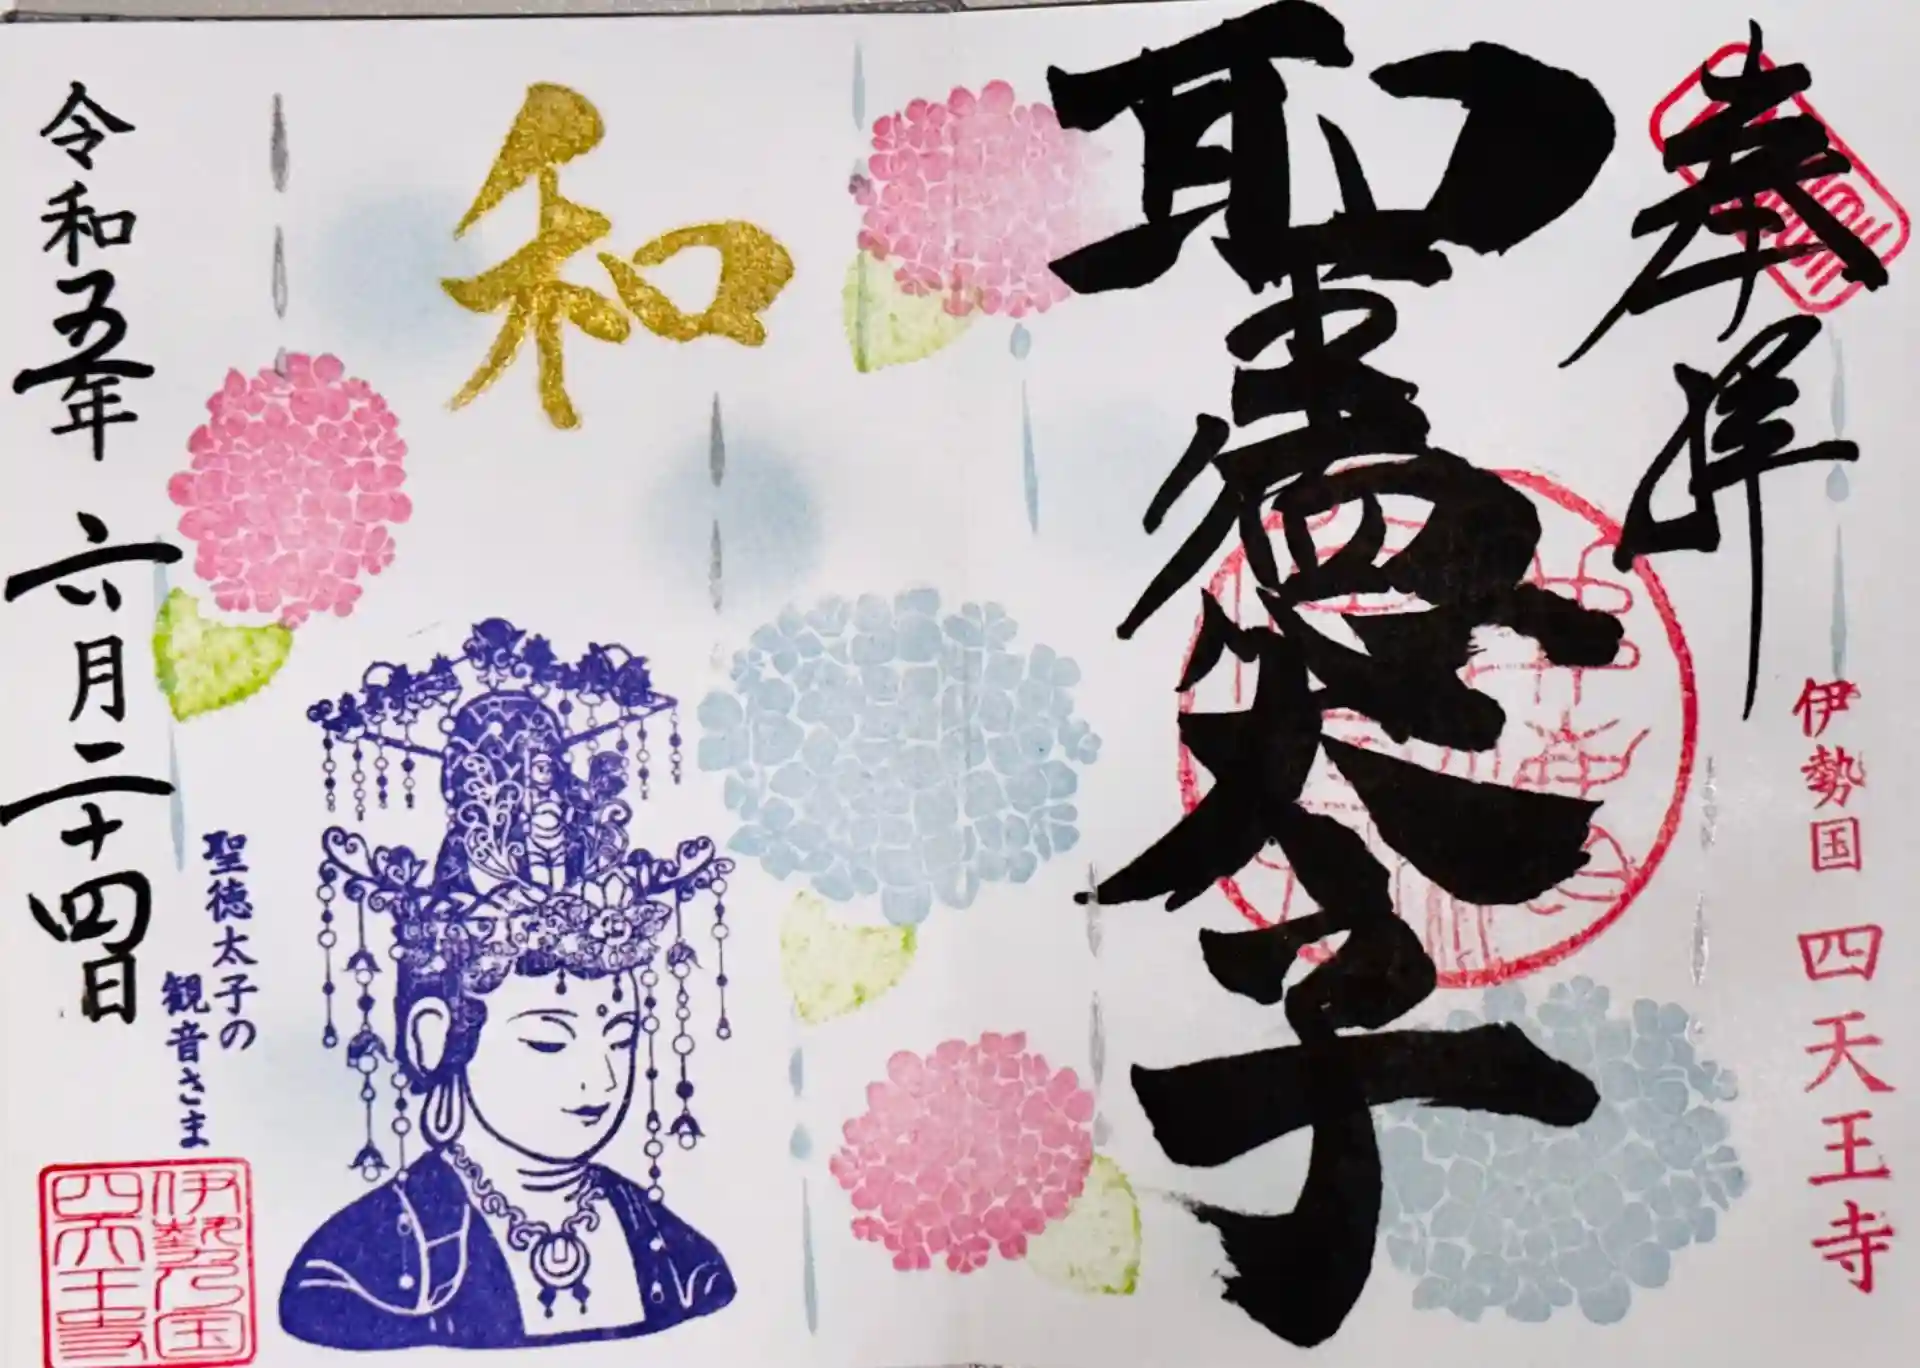 奉拝
伊勢国 四天王寺
聖徳太子
和
聖徳太子の
観音さま
令和五年 六月二十四日
伊勢乃国
四天王寺